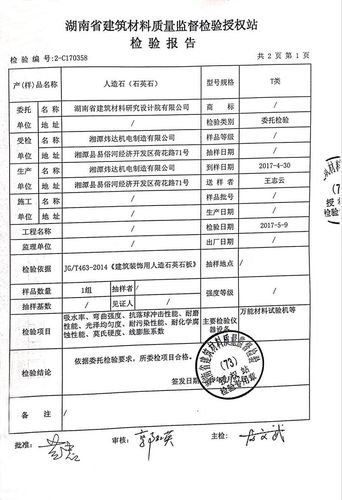 湖南省建筑材料质量监督检验授权站
检 验 报 告
检 验 编 号:2-C170358
共 2 页 第 1 页
产(样)品名称 人造石（石英石） 型号规格 T类
委托 名 称 湖南省建筑材料研究设计院有限公司 商 标 /
单位 地 址 / 检验类别 委托检验
受检 名 称 湘潭炜达机电制造有限公司 样品等级 /
单位 地 址 湘潭县易俗河经济开发区荷花路71号 抽样日期 /
生产 名 称 湘潭炜达机电制造有限公司 到样日期 2017-4-30
单位 地 址 湘潭县易俗河经济开发区荷花路71号 送 样 者 王志云
施工 名 称 / 样品批号 /
单位 地 址 / 生产日期 /
工程名称 / 检验日期 2017-5-9
监理单位 / 出厂日期 /
检验依据 JG/T463-2014《建筑装饰用人造石英石板》 抽样地点 /
样品数量 1组 抽样者 / 强度等级 /
抽样基数 / 见证人 /
检验项目 吸水率、弯曲强度、抗落球冲击性能、耐磨性能、光泽均匀度、耐污染性能、耐化学腐蚀性能、莫氏硬度、线膨胀系数 主要检验仪器设备 万能材料试验机等
检验结论 依据委托检验要求，所委检项目合格。
签发日期
湖南省建筑材料质量监督检验
(73)
授权站
检验专用章
备 注 /
批准:
审核:
主检: